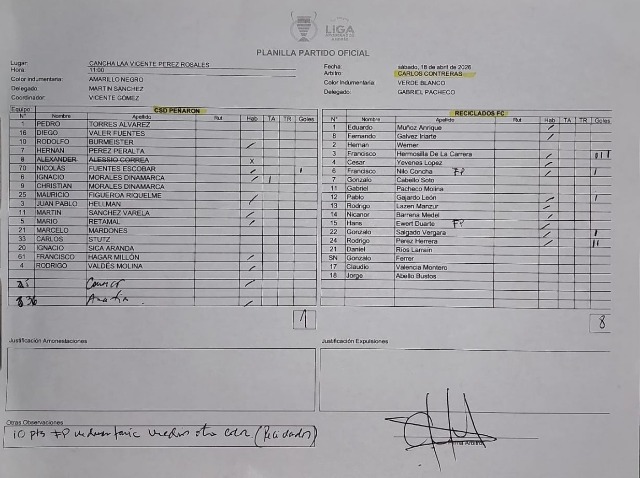 LIGA
PLANILLA PARTIDO OFICIAL
Lugar: CANCHA LAA VICENTE PEREZ ROSALES
Hora: 11:00
Color indumentaria: AMARILLO NEGRO
Delegado MARTIN SANCHEZ
Coordinador: VICENTE GÓMEZ
Fecha: sábado, 18 de abril de 2026
Arbitro: CARLOS CONTRERAS
Color Indumentaria: VERDE BLANCO
Delegado: GABRIEL PACHECO
Equipo: CSD PEÑARON
N° Nombre Apellido Rut Hab TA TR Goles
1 PEDRO TORRES ALVAREZ
16 DIEGO VALER FUENTES
10 RODOLFO BURMEISTER
7 HERNAN PEREZ PERALTA
8 ALEXANDER ALESSIO CORREA x
70 NICOLAS FUENTES ESCOBAR
6 IGNACIO MORALES DINAMARCA
9 CHRISTIAN MORALES DINAMARCA
25 MAURICIO FIGUEROA RIQUELME
3 JUAN PABLO HELLMAN
11 MARTIN SANCHEZ VARELA
5 MARIO RETAMAL
21 MARCELO MARDONES
33 CARLOS STUTZ
20 IGNACIO SICA ARANDA
61 FRANCISCO HAGAR MILLÓN
4 RODRIGO VALDÉS MOLINA
1
RECICLADOS FC
N° Nombre Apellido Rut Hab TA TR Goles
1 Eduardo Muñoz Anrique
8 Fernando Galvez Iriarte
2 Hernan Werner
3 Francisco Hermosilla De La Carrera
4 Cesar Yevenes Lopez
6 Francisco Nilo Concha FP
7 Gonzalo Cabello Soto
11 Gabriel Pacheco Molina
12 Pablo Gajardo León
13 Rodrigo Lazen Manzur
14 Nicanor Barrena Medel
15 Hans Ewert Duarte FP
22 Gonzalo Salgado Vergara
24 Rodrigo Perez Herrera
21 Daniel Rios Larrain
SN Gonzalo Ferrer
17 Claudio Valencia Montero
18 Jorge Abello Bustos
8
Justificación Amonestaciones
Justificación Expulsiones
Otras Observaciones
10 pts FP